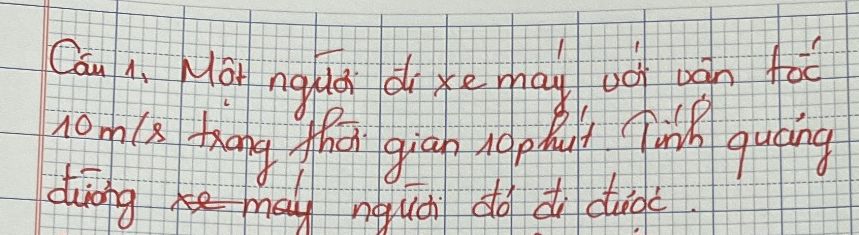 Câu 1. Một người đi xe máy với vận tốc
10m/s trong thời gian 10 phút. Tính quãng
đường xe máy người đó đi được.